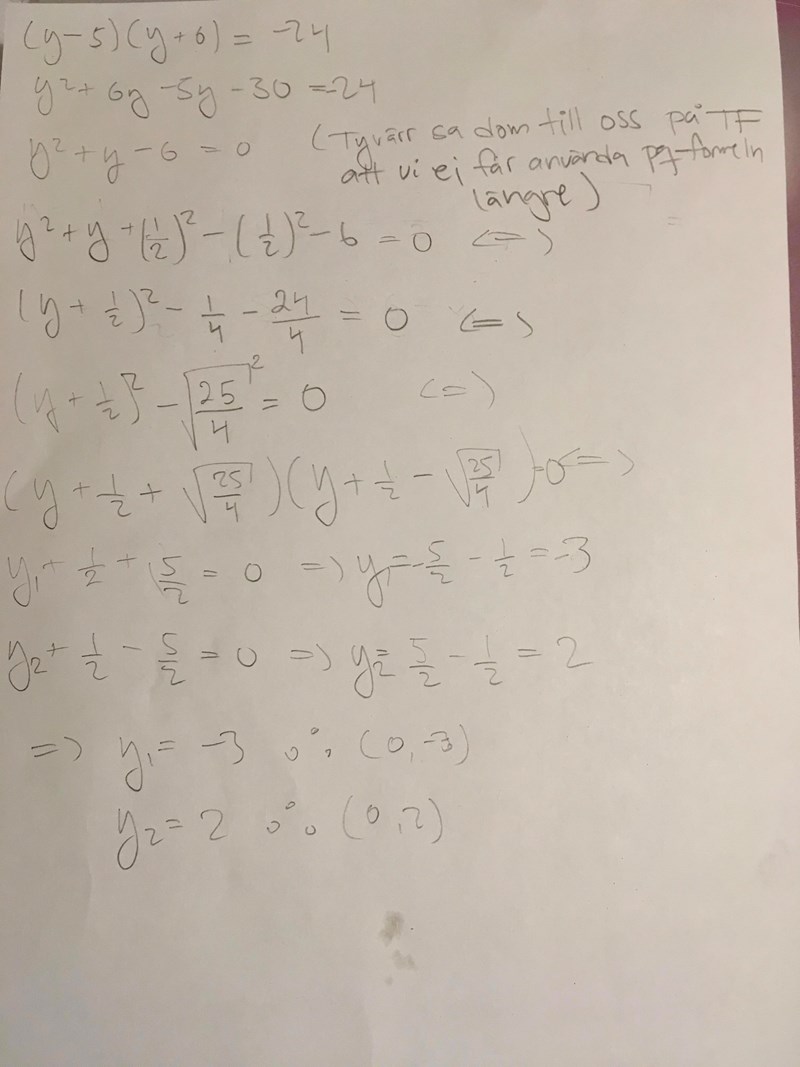 (y-5)(y+6) = -24
y²+ 6y -5y -30 = -24
y² + y - 6 = 0
(Tyvärr sa dom till oss på TF
att vi ej får använda pq-formeln
längre)
y² + y + (1/2)² - (1/2)² - 6 = 0 <=>
(y + 1/2)² - 1/4 - 24/4 = 0 <=>
(y + 1/2)² - √(25/4)² = 0 <=>
(y + 1/2 + √(25/4))(y + 1/2 - √(25/4)) = 0 <=>
y₁ + 1/2 + 5/2 = 0 => y₁ = -5/2 - 1/2 = -3
y₂ + 1/2 - 5/2 = 0 => y₂ = 5/2 - 1/2 = 2
=> y₁ = -3 ∴ (0,-3)
y₂ = 2 ∴ (0,2)